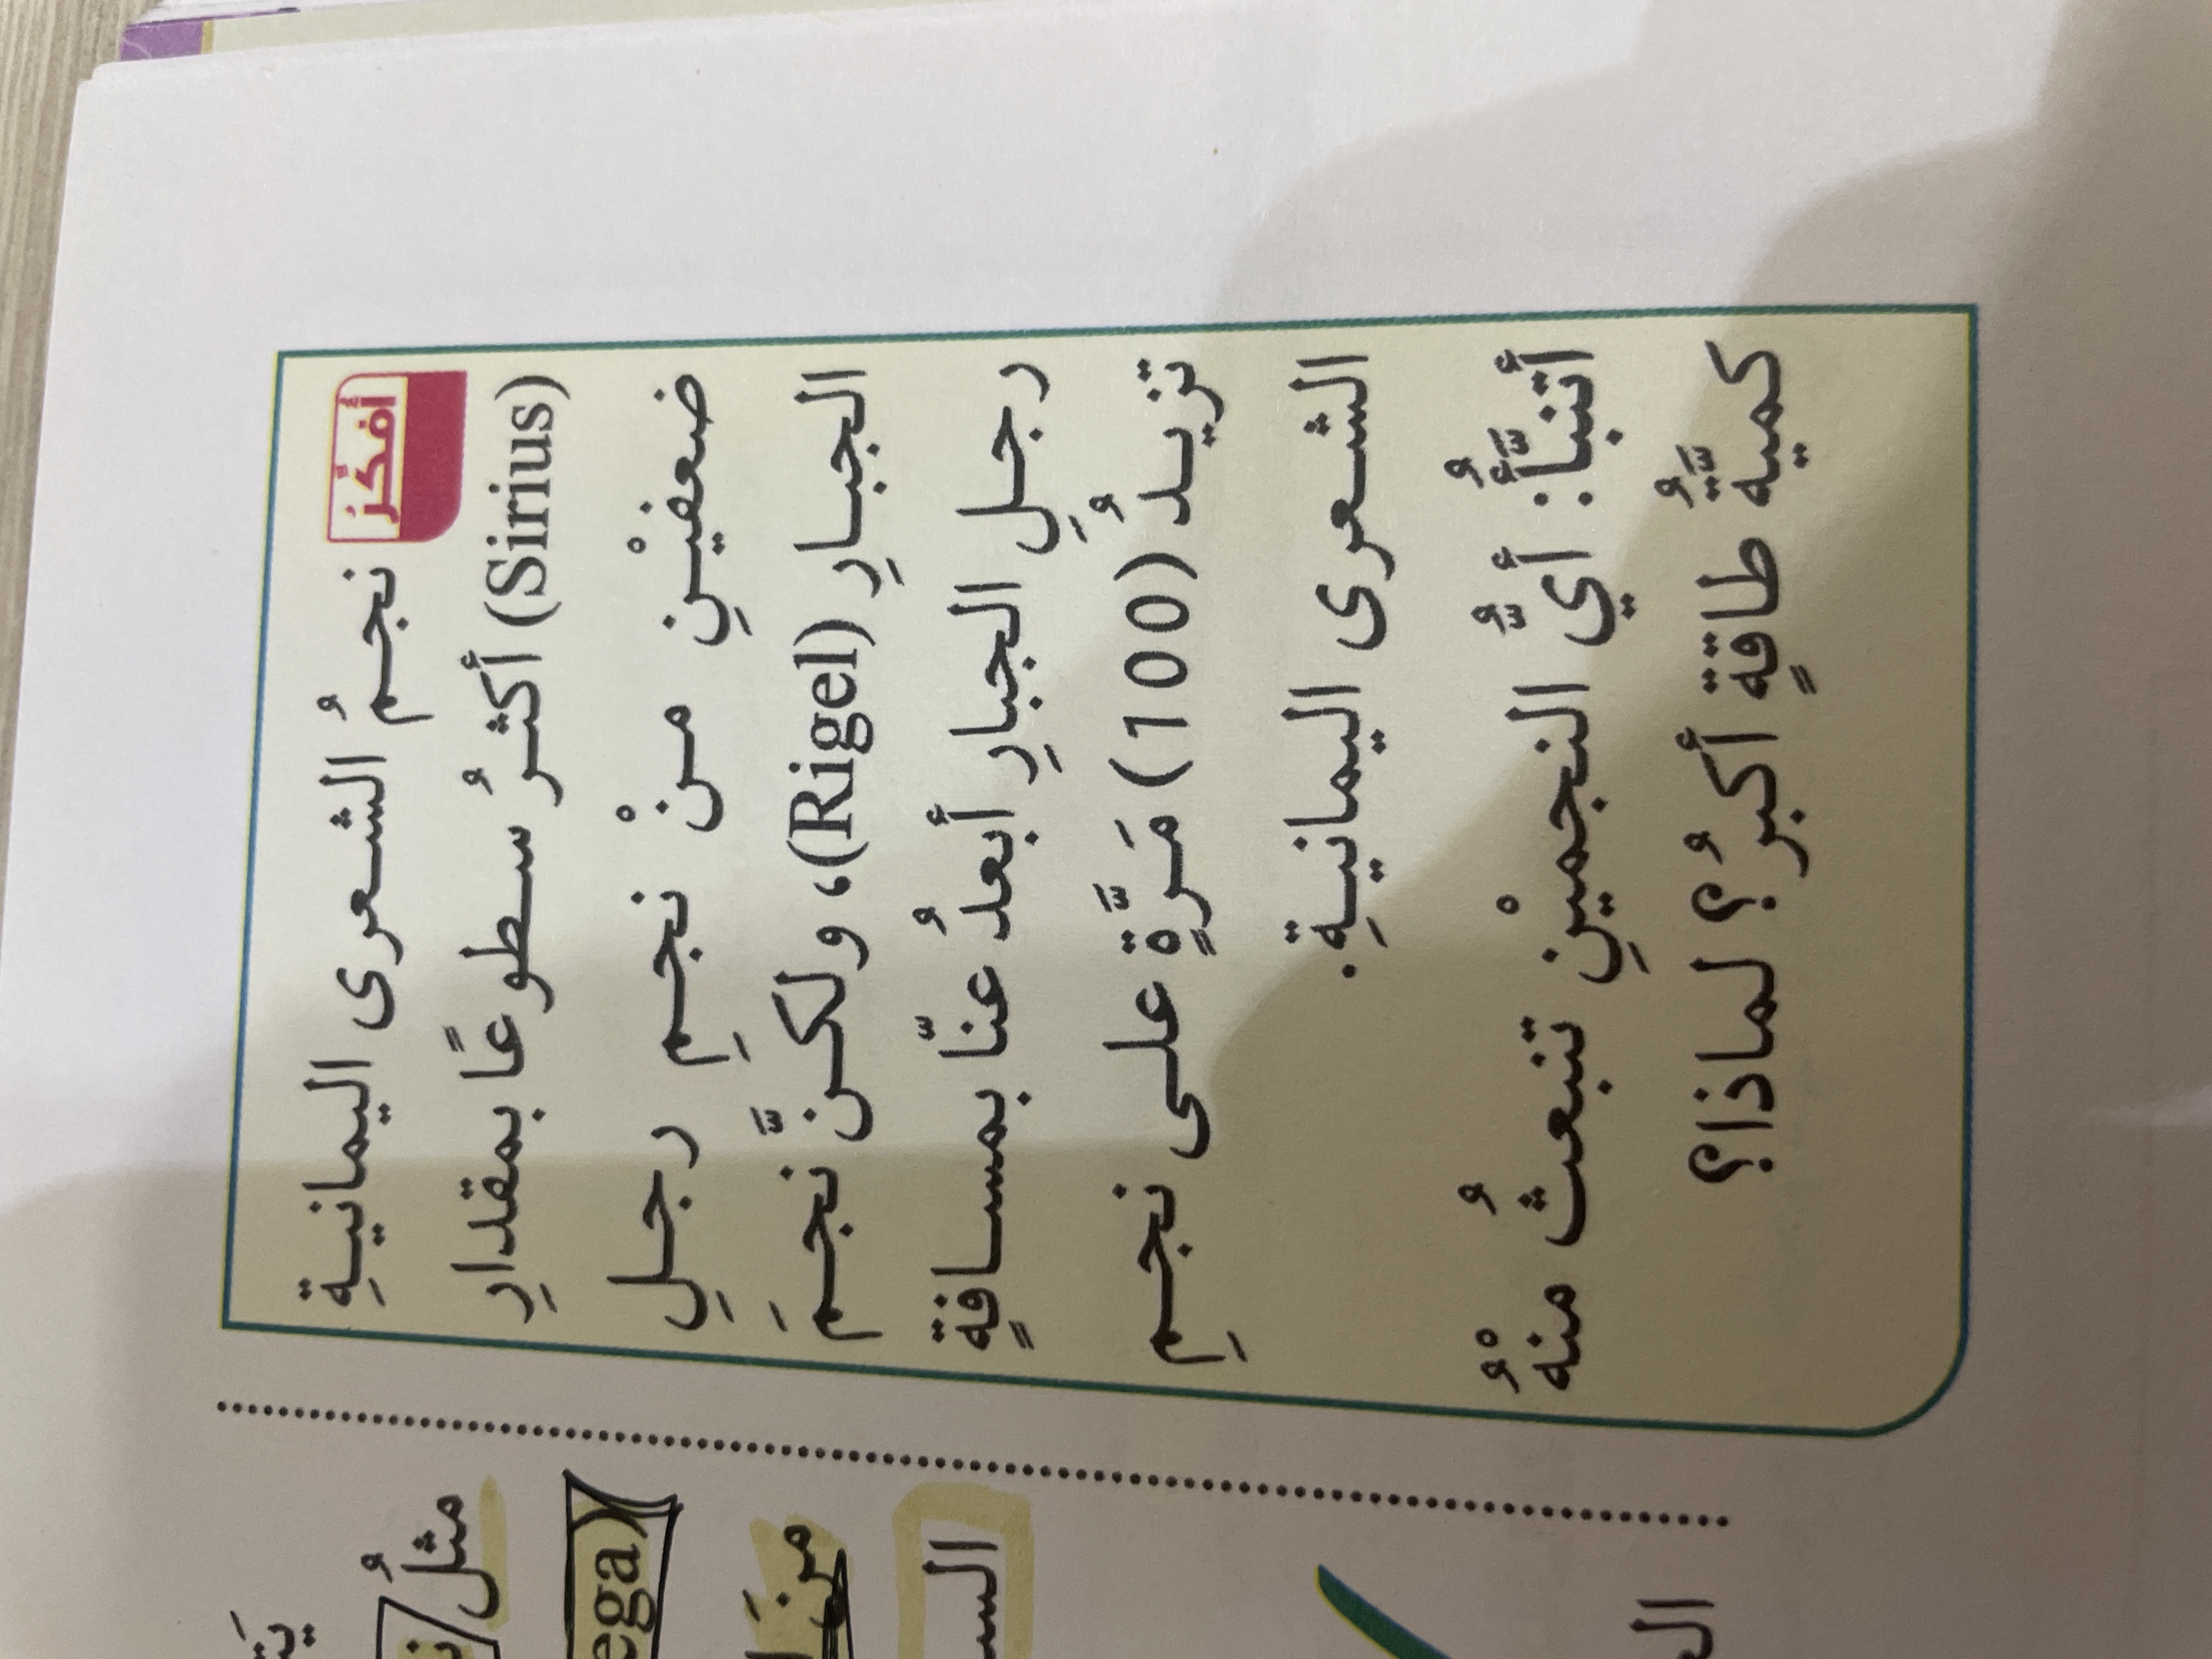 أفكّرُ
نجمُ الشعرى اليمانيةِ
(Sirius) أكثرُ سطوعًا بمقدارِ
ضعفيْنِ منْ نجمِ رجلِ
الجبارِ (Rigel)، ولكنَّ نجمَ
رجلِ الجبارِ أبعدُ عنّا بمسافةٍ
تزيدُ (100) مَرَّةٍ على نجمِ
الشعرى اليمانيةِ.
أتنبَّأُ: أيُّ النجميْنِ تنبعثُ منهُ
كميَّةُ طاقةٍ أكبرُ؟ لماذا؟
مثلُ
ega)
منَ